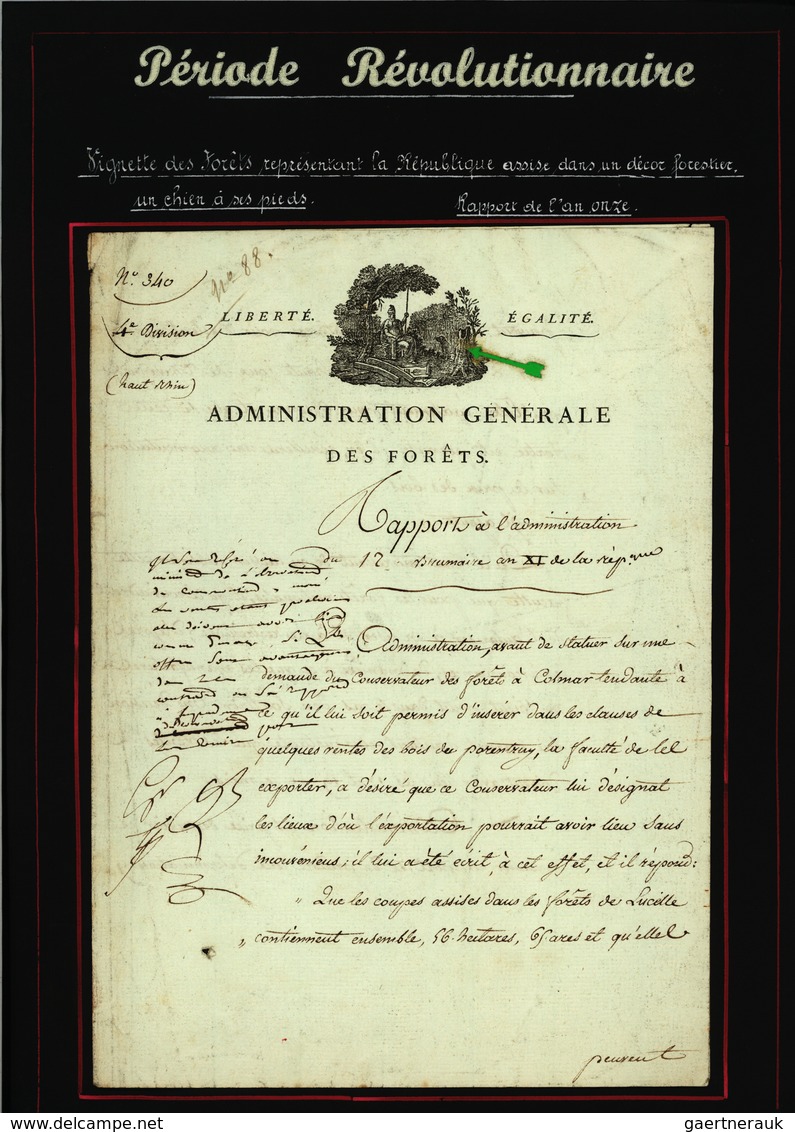 Période Révolutionnaire
Vignette des Forêts représentant la République assise dans un décor forestier,
un chien à ses pieds. Rapport de l'an onze.
N.º 340
nº 88.
4.e Division
(haut Rhin)
LIBERTÉ. ÉGALITÉ.
ADMINISTRATION GÉNÉRALE
DES FORÊTS.
Rapport à l'administration
du 12 Brumaire an XI de la rép.que
L'Administration, avant de statuer sur une
demande du Conservateur des forêts à Colmar tendante à
ce qu'il lui soit permis d'insérer dans les clauses de
quelques ventes des bois de porentruy, la faculté de les
exporter, a désiré que ce Conservateur lui désignat
les lieux d'où l'exportation pourrait avoir lieu sans
inconvéniens; il lui a été écrit à cet effet, et il répond:
„ Que les coupes assises dans les forêts de Lucelle
„ contiennent ensemble, 56 hectares, 65 ares et qu'elles
peuvent
gaertnerauk